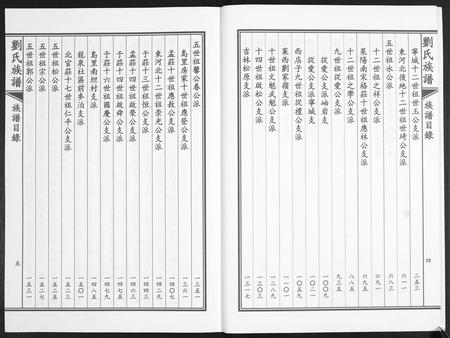 劉氏族譜
族譜目錄
四
寧城十二世祖世玉公支派 二五三
東河北後地十二世祖世琦公支派 六一一
五世祖永公派 六八三
十二世祖之祥公支派 七八一
萊陽南宋格莊十世祖應林公支派
十二世祖之學公支派 八八五
九世祖從愛公支派 九三五
從愛公支派岫岩支 一〇〇九
從愛公支派寧城支
西店子九世祖從禮公支派 一〇五九
萊西劉家嶺支派
十世祖文魁武魁公支派
十四世祖啟松公支派 一三〇三
吉林松原支派 一三一七
五世祖馨公春公派 一三五一
島里房家十世祖應登公支派 一三六一
孟莊十世祖應教公支派 一四〇七
東河北十二世祖崇光公支派 一四二九
于莊十三世祖恒公支派
孟莊十四世祖啟榮公支派 一四六一
于莊十四世祖啟舜公支派 一四七五
于莊十六世祖國慶公支派
島里南坦村支派 一四八五
龍泉社區前麥泊支派 一五〇一
北官莊十七世祖仁平公支派
五世祖松公派
五世祖宗公派 一五二七
五世祖郭公派 一五三一
劉氏族譜
族譜目錄
五